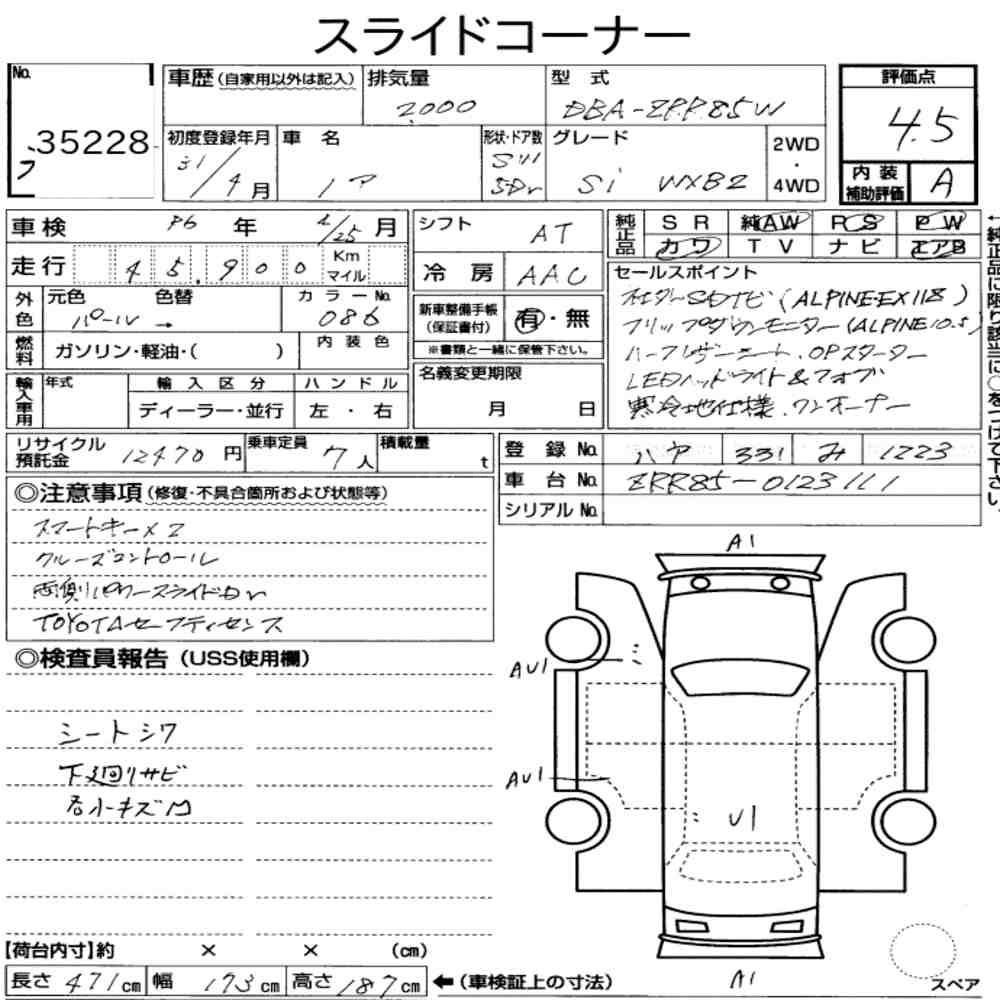 スライドコーナー
No. 35228-
フ
車歴(自家用以外は記入) 排気量 2000 型 式 DBA-ZRR85W
評価点 4.5
初度登録年月 31/4月 車 名 ノア 形状・ドア数 SW 5Dr グレード Si WXB2 2WD・4WD
内 装 補助評価 A
車検 R6 年 4/25 月
シフト AT
純正品 SR 純AW PS PW
カワ TV ナビ エアB
走行 45,900 Km マイル
冷 房 AAC
←純正品に限り該当に○をつけて下さい。
外色 元色 パール → 色替 カラーNo. 086
内装色
新車整備手帳(保証書付) 有・無
※書類と一緒に保管下さい。
セールスポイント
社外SDナビ(ALPINE-EX118)
フリップダウンモニター(ALPINE10.5)
ハーフレザーシート.OPスターター
LEDヘッドライト&フォグ
寒冷地仕様.ワンオーナー
燃料 ガソリン・軽油・( )
輸入車用 年式 輸入区分 ハンドル
ディーラー・並行 左・右
名義変更期限
月 日
リサイクル預託金 12470 円 乗車定員 7人 積載量 t
登録No. ハヤ 331 み 1223
車台No. ZRR85-0123111
シリアルNo.
◎注意事項(修復・不具合箇所および状態等)
スマートキー×2
クルーズコントロール
両側パワースライドDr
TOYOTAセーフティセンス
◎検査員報告(USS使用欄)
シートシワ
下廻りサビ
各小キズ凹
A1
AU1
AU1
U1
A1
【荷台内寸】約 × × (cm)
長さ 471cm 幅 173cm 高さ 187cm ←(車検証上の寸法)
スペア